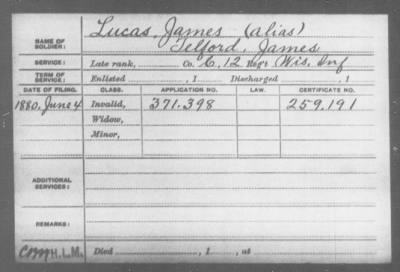 NAME OF SOLDIER: Lucas, James (alias)
Telford, James
SERVICE: Late rank, Co. C, 12 Reg't Wis. Inf
TERM OF SERVICE: Enlisted , 1 Discharged , 1
DATE OF FILING. CLASS. APPLICATION NO. LAW. CERTIFICATE NO.
1880, June 4 Invalid, 371.398 259.191
Widow,
Minor,
ADDITIONAL SERVICES:
REMARKS:
H.L.M. Died , 1 , at